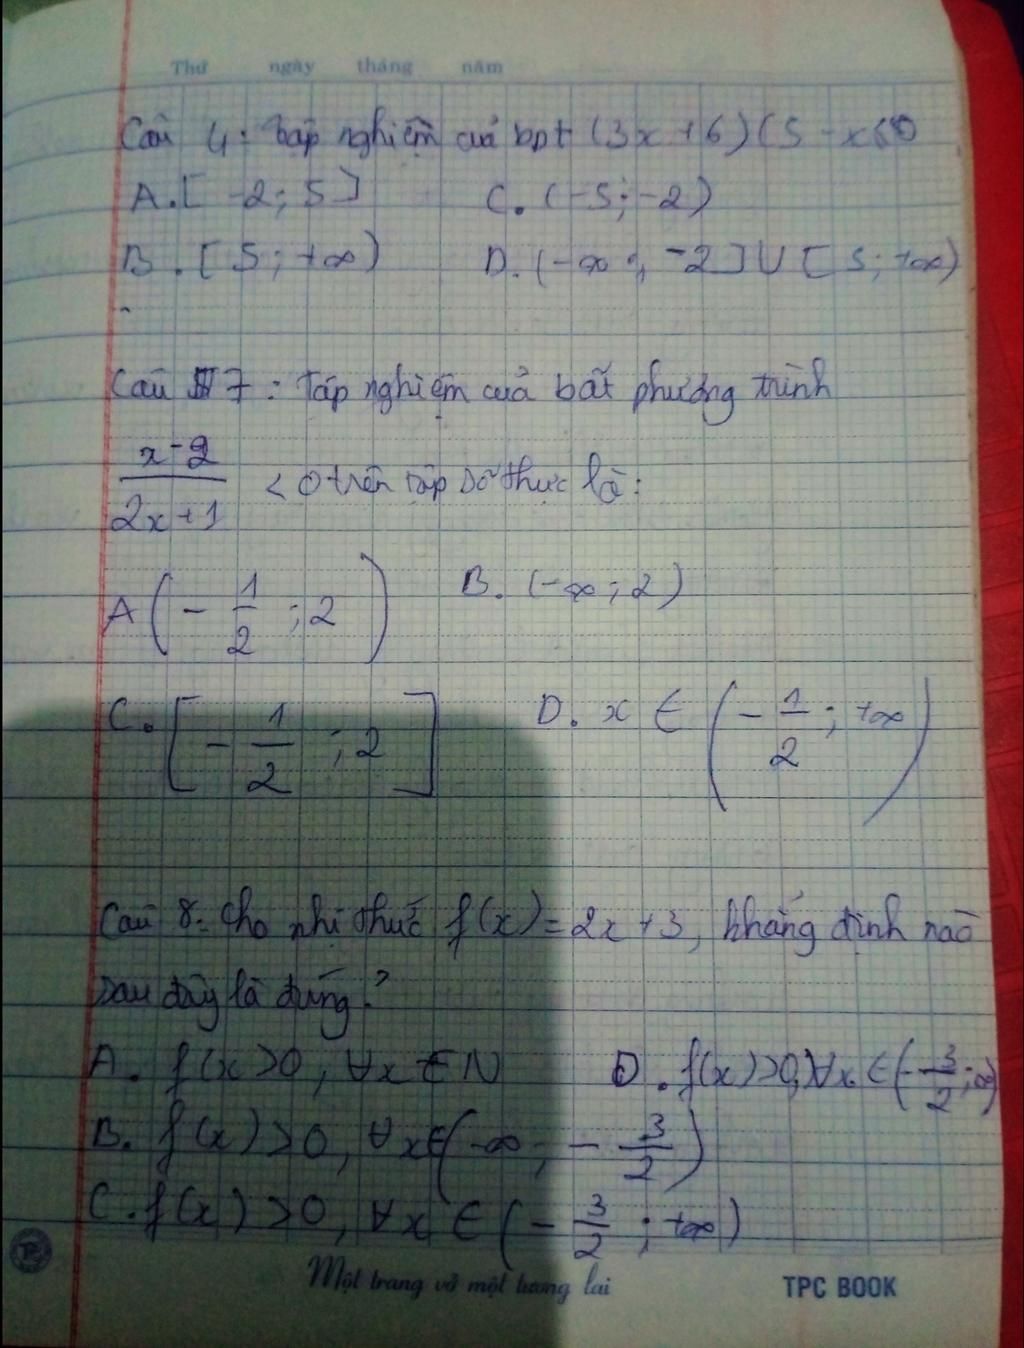 Thứ ngày tháng năm
Câu 4: Tập nghiệm của bpt (3x+6)(5-x≤0
A. [-2; 5] C. (-5; -2)
B. [5; +∞) D. (-∞; -2]∪[5; +∞)
Câu 7: Tập nghiệm của bất phương trình
x-2/2x+1 < 0 trên tập số thực là:
A (-1/2; 2) B. (-∞; 2)
C. [-1/2; 2] D. x ∈ (-1/2; +∞)
Câu 8: Cho nhị thức f(x)=2x+3, khẳng định nào
sau đây là đúng?
A. f(x>0, ∀x∈N D. f(x)>0,∀x∈(-3/2; ∞)
B. f(x)>0, ∀x∈(-∞; -3/2)
C. f(x)>0, ∀x ∈ (-3/2; +∞)
Một trang vở một tương lai TPC BOOK